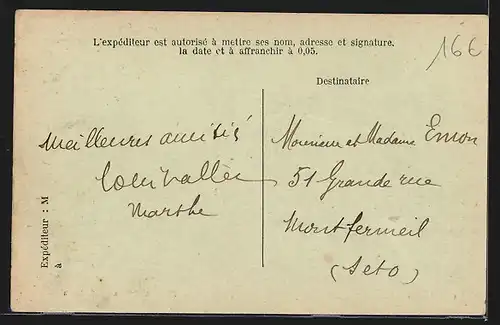 L'expéditeur est autorisé à mettre ses nom, adresse et signature,
la date et à affranchir à 0,05.
16€
Destinataire
Meilleures amitiés
Marthe
Expéditeur : M
à
Monsieur et Madame Emon
51 Grande rue
Montfermeil
(Seto)